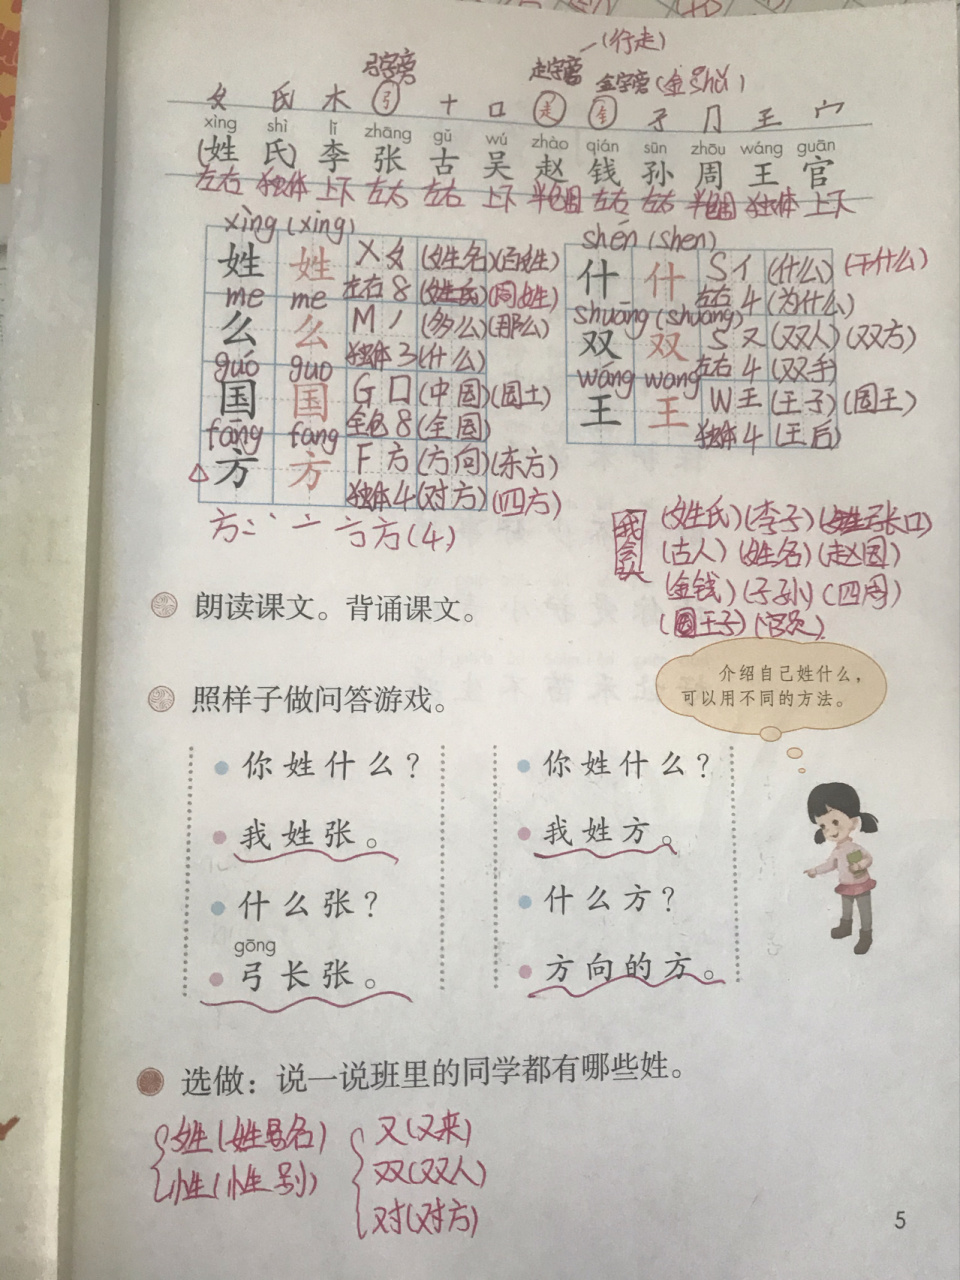 (行走)
弓字旁 走字旁 金字旁(金shǔ)
女 氏 木 弓 十 口 走 钅 子 冂 王 宀
xìng shì lǐ zhāng gǔ wú zhào qián sūn zhōu wáng guān
(姓 氏) 李 张 古 吴 赵 钱 孙 周 王 官
左右 独体 上下 左右 左右 上下 半包围 左右 左右 半包围 独体 上下
xìng (xing)
姓 姓 X 女 (姓名)(百姓)
左右 8 (姓氏)(同姓)
me me
么 么 M 丿 (多么)(那么)
独体 3 (什么)
guó guo
国 国 G 口 (中国)(国土)
全包 8 (全国)
fāng fang
方 方 F 方 (方向)(东方)
独体 4 (对方)(四方)
方:丶 亠 方(4)
shén (shen)
什 什 S 亻 (什么) (干什么)
左右 4 (为什么)
shuāng (shuang)
双 双 S 又 (双人) (双方)
左右 4 (双手)
wáng wang
王 王 W 王 (王子) (国王)
独体 4 (王后)
我会认 (姓氏)(李子)(张口)
(古人) (姓名) (赵国)
(金钱) (子孙) (四周)
(国王子) (官员)
朗读课文。背诵课文。
介绍自己姓什么,
可以用不同的方法。
照样子做问答游戏。
你姓什么?
我姓张。
什么张?
gōng
弓长张。
你姓什么?
我姓方。
什么方?
方向的方。
选做:说一说班里的同学都有哪些姓。
姓(姓名)
性(性别)
又(又来)
双(双人)
对(对方)
5